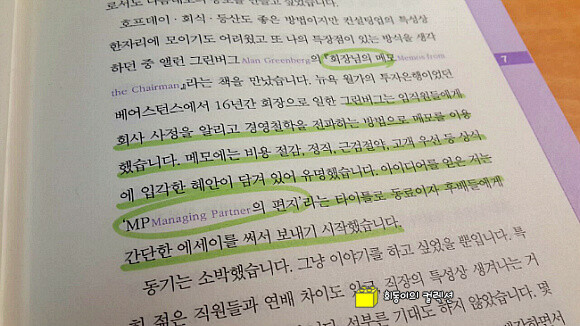 호프데이·회식·등산도 좋은 방법이지만 컨설팅업의 특성상
한자리에 모이기도 어려웠고 또 나의 특장점이 있는 방식을 생각
하던 중 앨런 그린버그Alan Greenberg의 『회장님의 메모Memos from
the Chairman』라는 책을 만났습니다. 뉴욕 월가의 투자은행이었던
베어스턴스에서 16년간 회장으로 일한 그린버그는 임직원들에게
회사 사정을 알리고 경영철학을 전파하는 방법으로 메모를 이용
했습니다. 메모에는 비용 절감, 정직, 근검절약, 고객 우선 등 상식
에 입각한 혜안이 담겨 있어 유명했습니다. 아이디어를 얻은 저는
'MPManaging Partner의 편지'라는 타이틀로 동료이자 후배들에게
간단한 에세이를 써서 보내기 시작했습니다.
동기는 소박했습니다. 그냥 이야기를 하고 싶었을 뿐입니다. 특
히 젊은 직원들과 연배 차이도 있고, 직장의 특성상 생겨나는 거
기대도 하지 않았습니다. 몇
7
회동이의 컬렉션